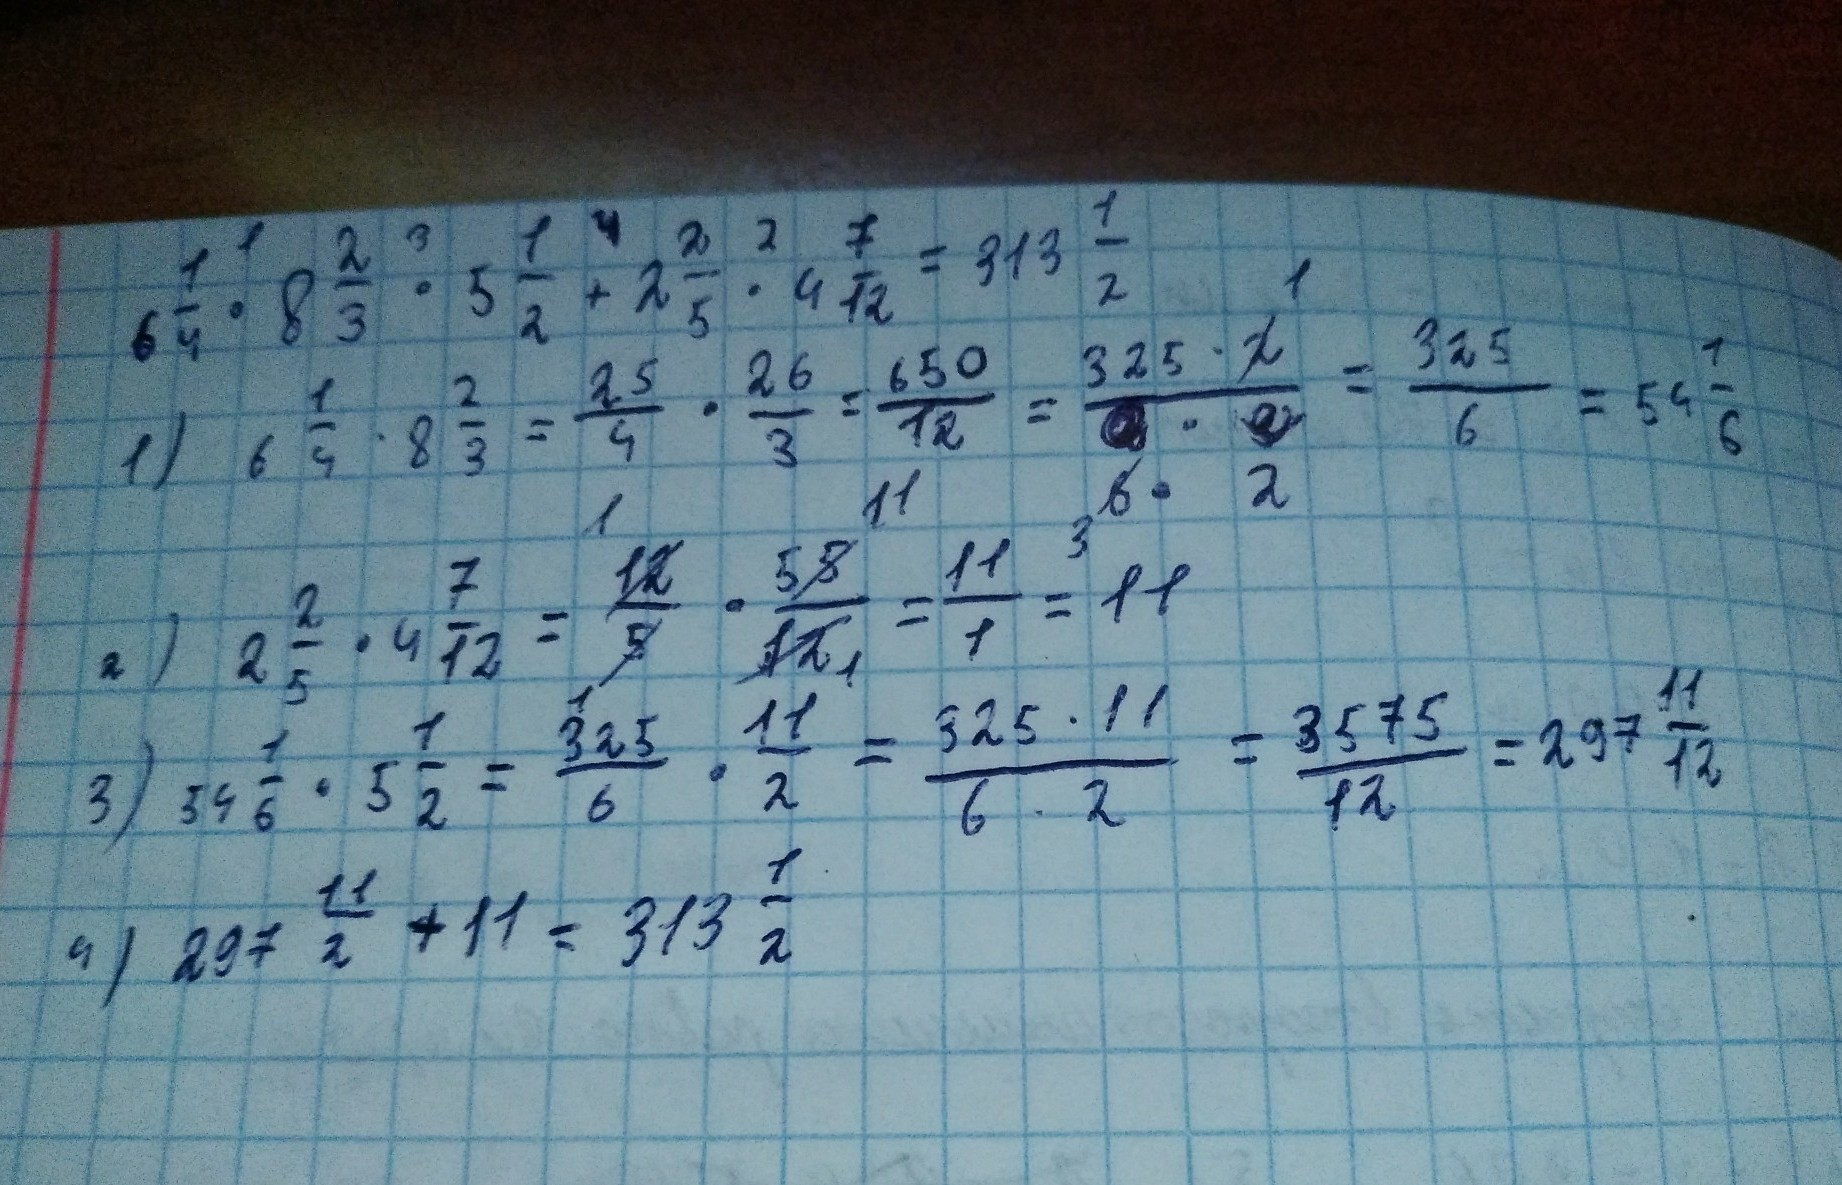 6 1/4 · 8 2/3 · 5 1/2 + 2 2/5 · 4 7/12 = 313 1/2
1) 6 1/4 · 8 2/3 = 25/4 · 26/3 = 650/12 = 325·2/6·2 = 325/6 = 54 1/6
2) 2 2/5 · 4 7/12 = 12/5 · 55/12 = 11/1 = 11
3) 54 1/6 · 5 1/2 = 325/6 · 11/2 = 325·11/6·2 = 3575/12 = 297 11/12
4) 297 11/2 + 11 = 313 1/2